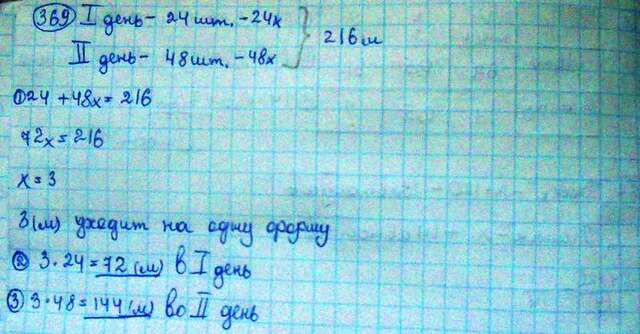 369 I день - 24 шт. - 24x
II день - 48 шт. - 48x } 216 м
① 24 + 48x = 216
72x = 216
x = 3
3 (м) уходит на одну форму
② 3 · 24 = 72 (м) в I день
③ 3 · 48 = 144 (м) во II день